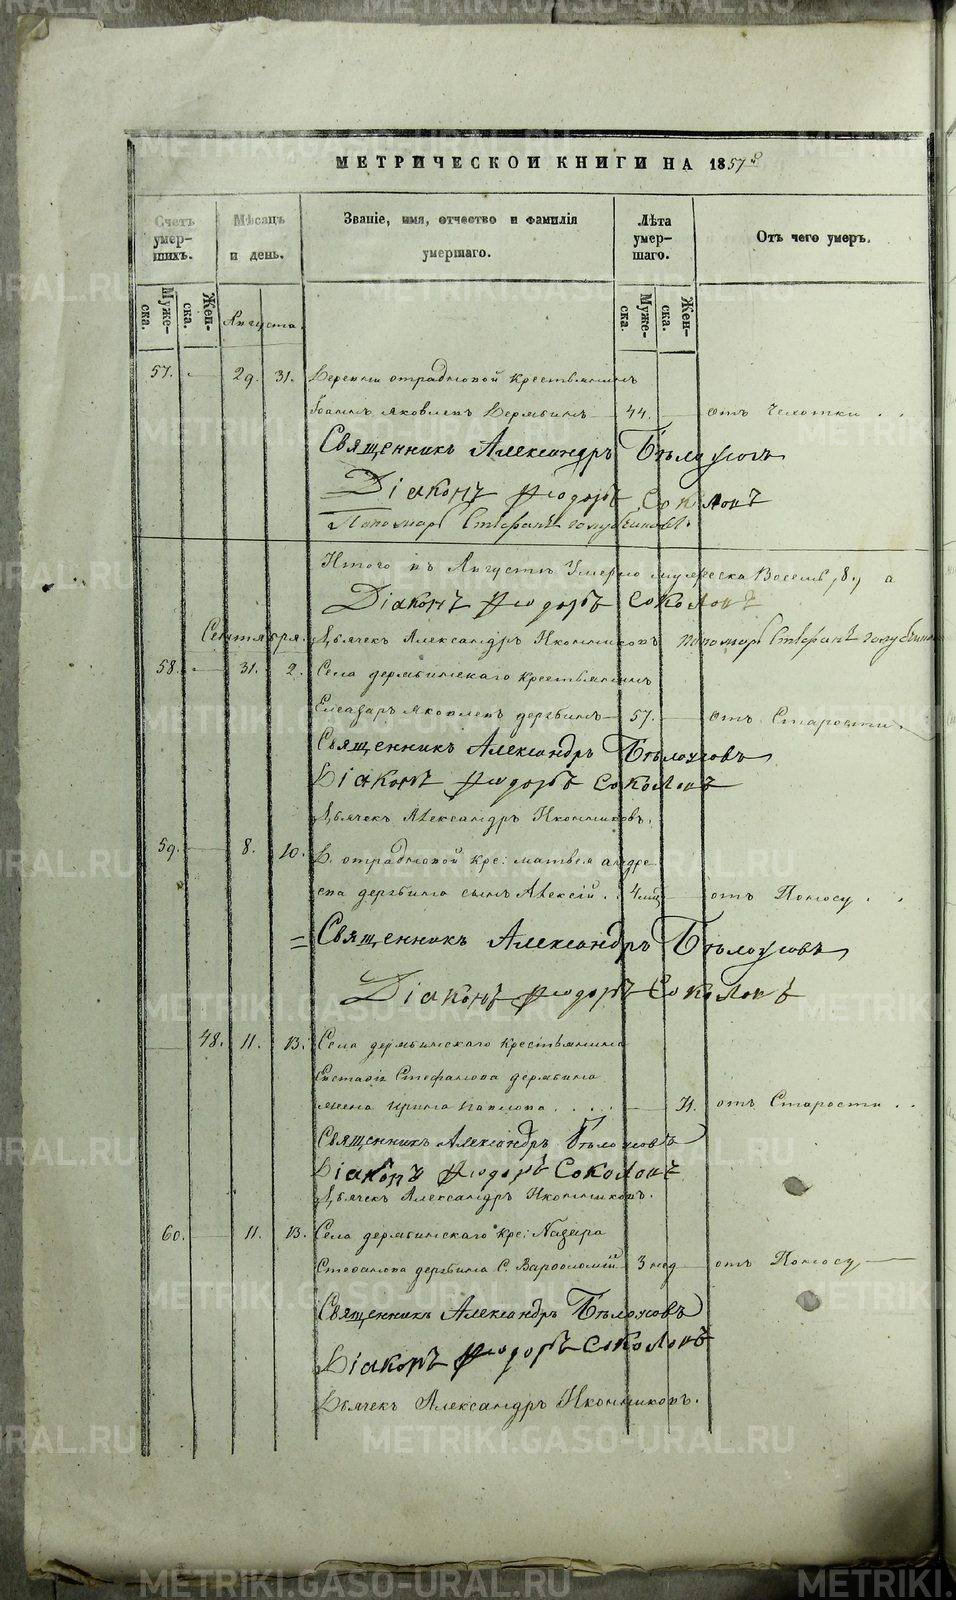 МЕТРИЧЕСКОЙ КНИГИ НА 1857
Счетъ умер-шихъ.
Мѣсяцъ и день.
Званіе, имя, отчество и фамилія умершаго.
Лѣта умер-шаго.
Отъ чего умеръ.
Муже-ска.
Жен-ска.
Августа
Муже-ска.
Жен-ска.
57. 29. 31. Деревни Отрадновой крестьянинъ
Іоаннъ Яковлевъ Дерябинъ 44. отъ Чахотки . .
Священникъ Александръ Бѣлоусовъ
Діаконъ Ѳеодоръ Соколовъ
Пономарь Стефанъ Голубчиковъ.
Итого въ Августѣ Умерло мужеска Восемь, 8, а
Діаконъ Ѳеодоръ Соколовъ
Сентября. Дьячекъ Александръ Иконниковъ Пономарь Стефанъ
58. 31. 2. Села дерябинскаго крестьянинъ
Елеазаръ Яковлевъ дерябинъ 57. отъ Старости.
Священникъ Александръ Бѣлоусовъ
Діаконъ Ѳеодоръ Соколовъ
Дьячекъ Александръ Иконниковъ.
59. 8. 10. Д. отрадновой кре: матвея андре
ева дерябина сынъ Алексій . . 4 мѣц отъ Поносу . .
Священникъ Александръ Бѣлоусовъ
Діаконъ Ѳеодоръ Соколовъ
48. 11. 13. Села дерябинскаго крестьянина
Стефанова дерябина
жена ирина павлова . . . . 71. отъ Старости . .
Священникъ Александръ Бѣлоусовъ
Діаконъ Ѳеодоръ Соколовъ
Дьячекъ Александръ Иконниковъ.
60. 11. 13. Села дерябинскаго кре: Назара
Стефанова дерябина С. Варѳоломій 3 нед отъ Поносу
Священникъ Александръ Бѣлоусовъ
Діаконъ Ѳеодоръ Соколовъ
Дьячекъ Александръ Иконниковъ.